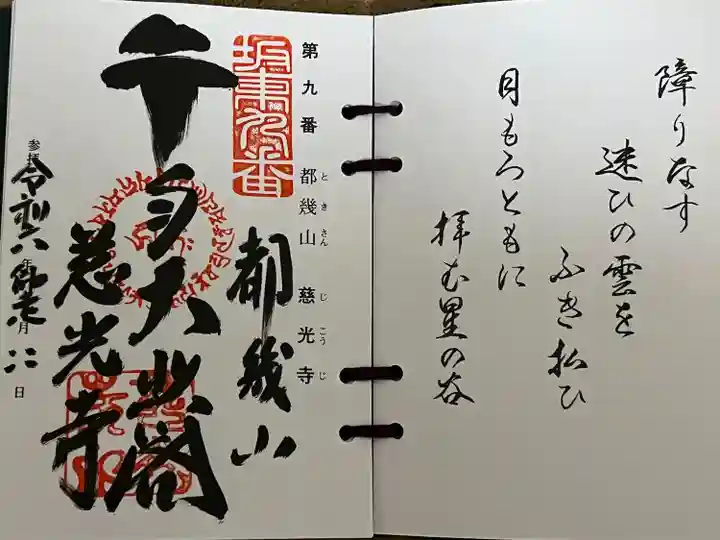 障りなす
迷ひの雲を
ふき払ひ
月もろともに
拝む星の谷
第九番 都幾山 慈光寺
とき さん じ こう じ
坂東九番
都幾山
千手大悲閣
慈光寺
参拝 令和六年 月 日